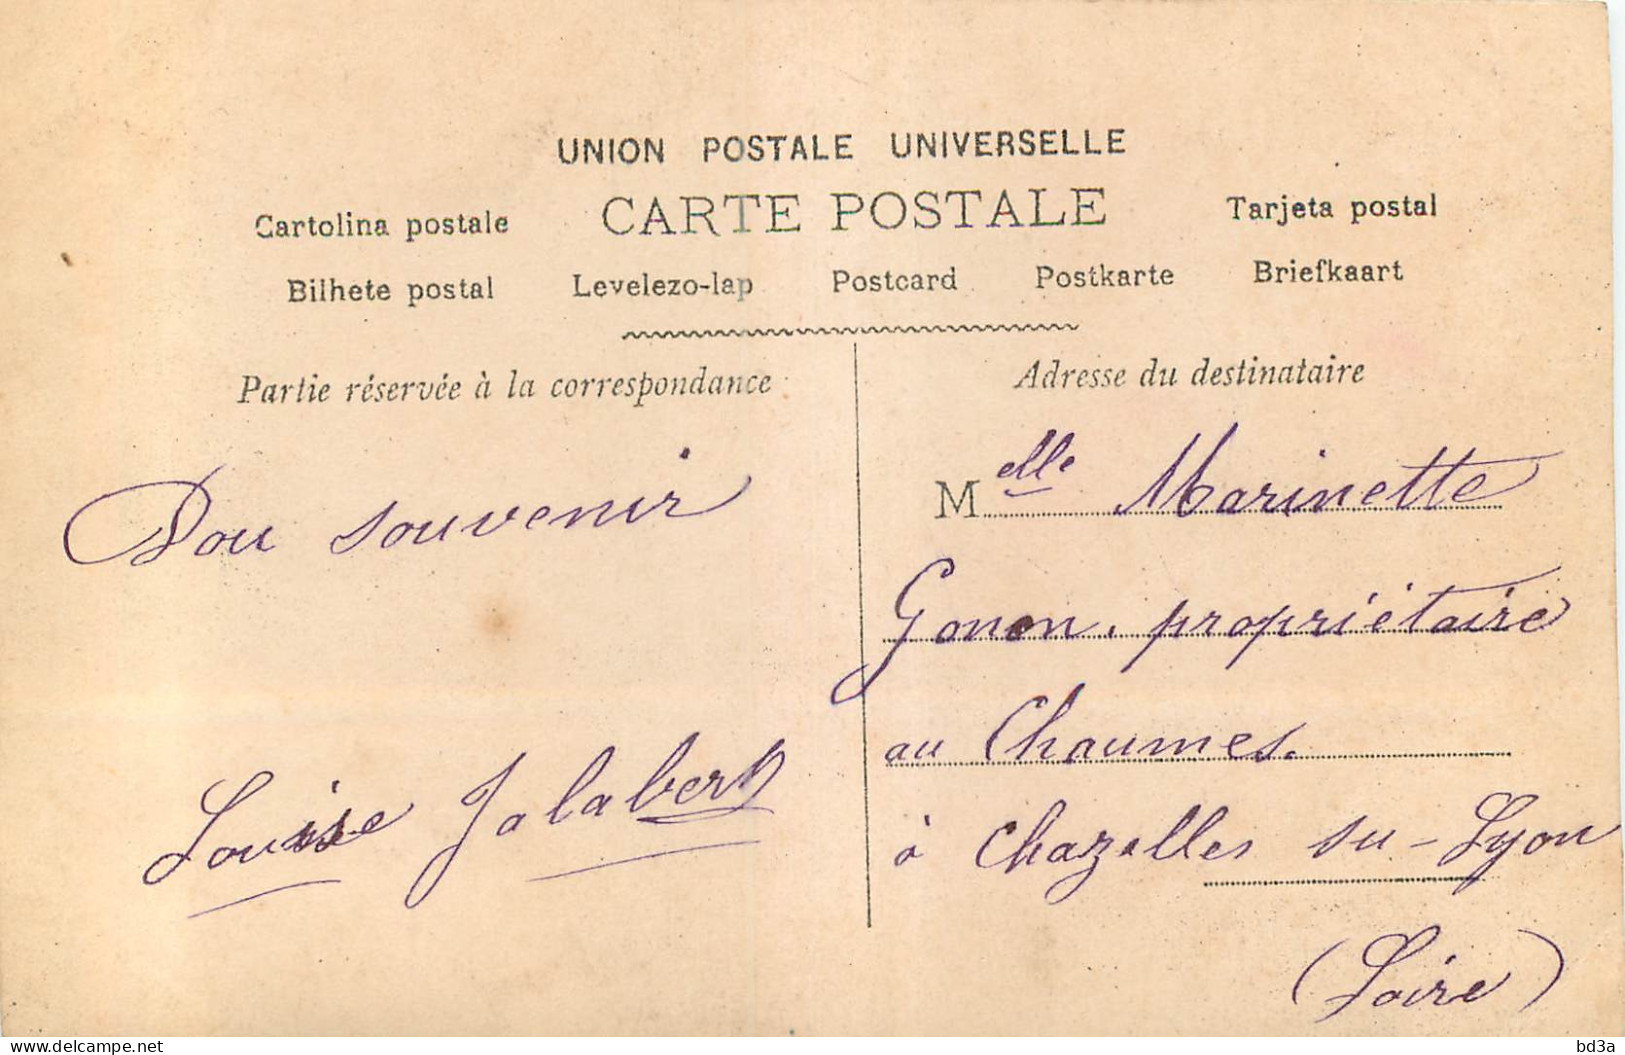 UNION POSTALE UNIVERSELLE
CARTE POSTALE
Cartolina postale
Tarjeta postal
Bilhete postal Levelezo-lap Postcard Postkarte Briefkaart
Partie réservée à la correspondance
Dou souvenir
Louise Jalabert
Adresse du destinataire
Melle Marinette
Gonon. propriétaire
au Chaumes.
à Chazelles su-Lyon
(Loire)
delcampe.net
bd3a